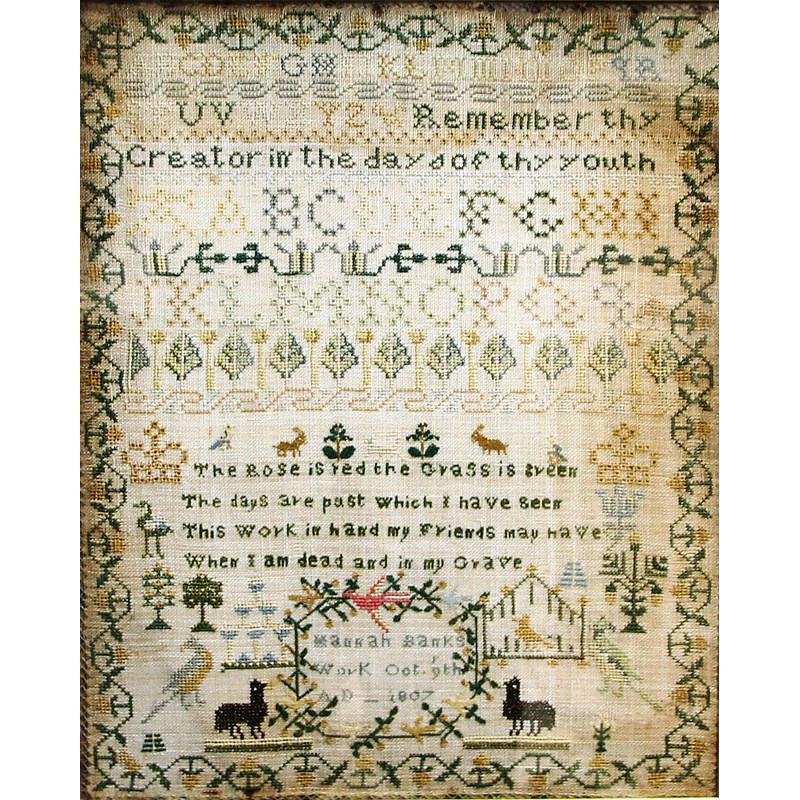 UV YZ Remember thy
Creator in the days of thy youth
A BC D E F G H I
J K L M N O P Q
The Rose is red the Grass is Green
The days are past which I have Seen
This Work in hand my Friends may Have
When I am dead and in my Grave
Hannah Banks
Work Oct. 9th
A D – 1807